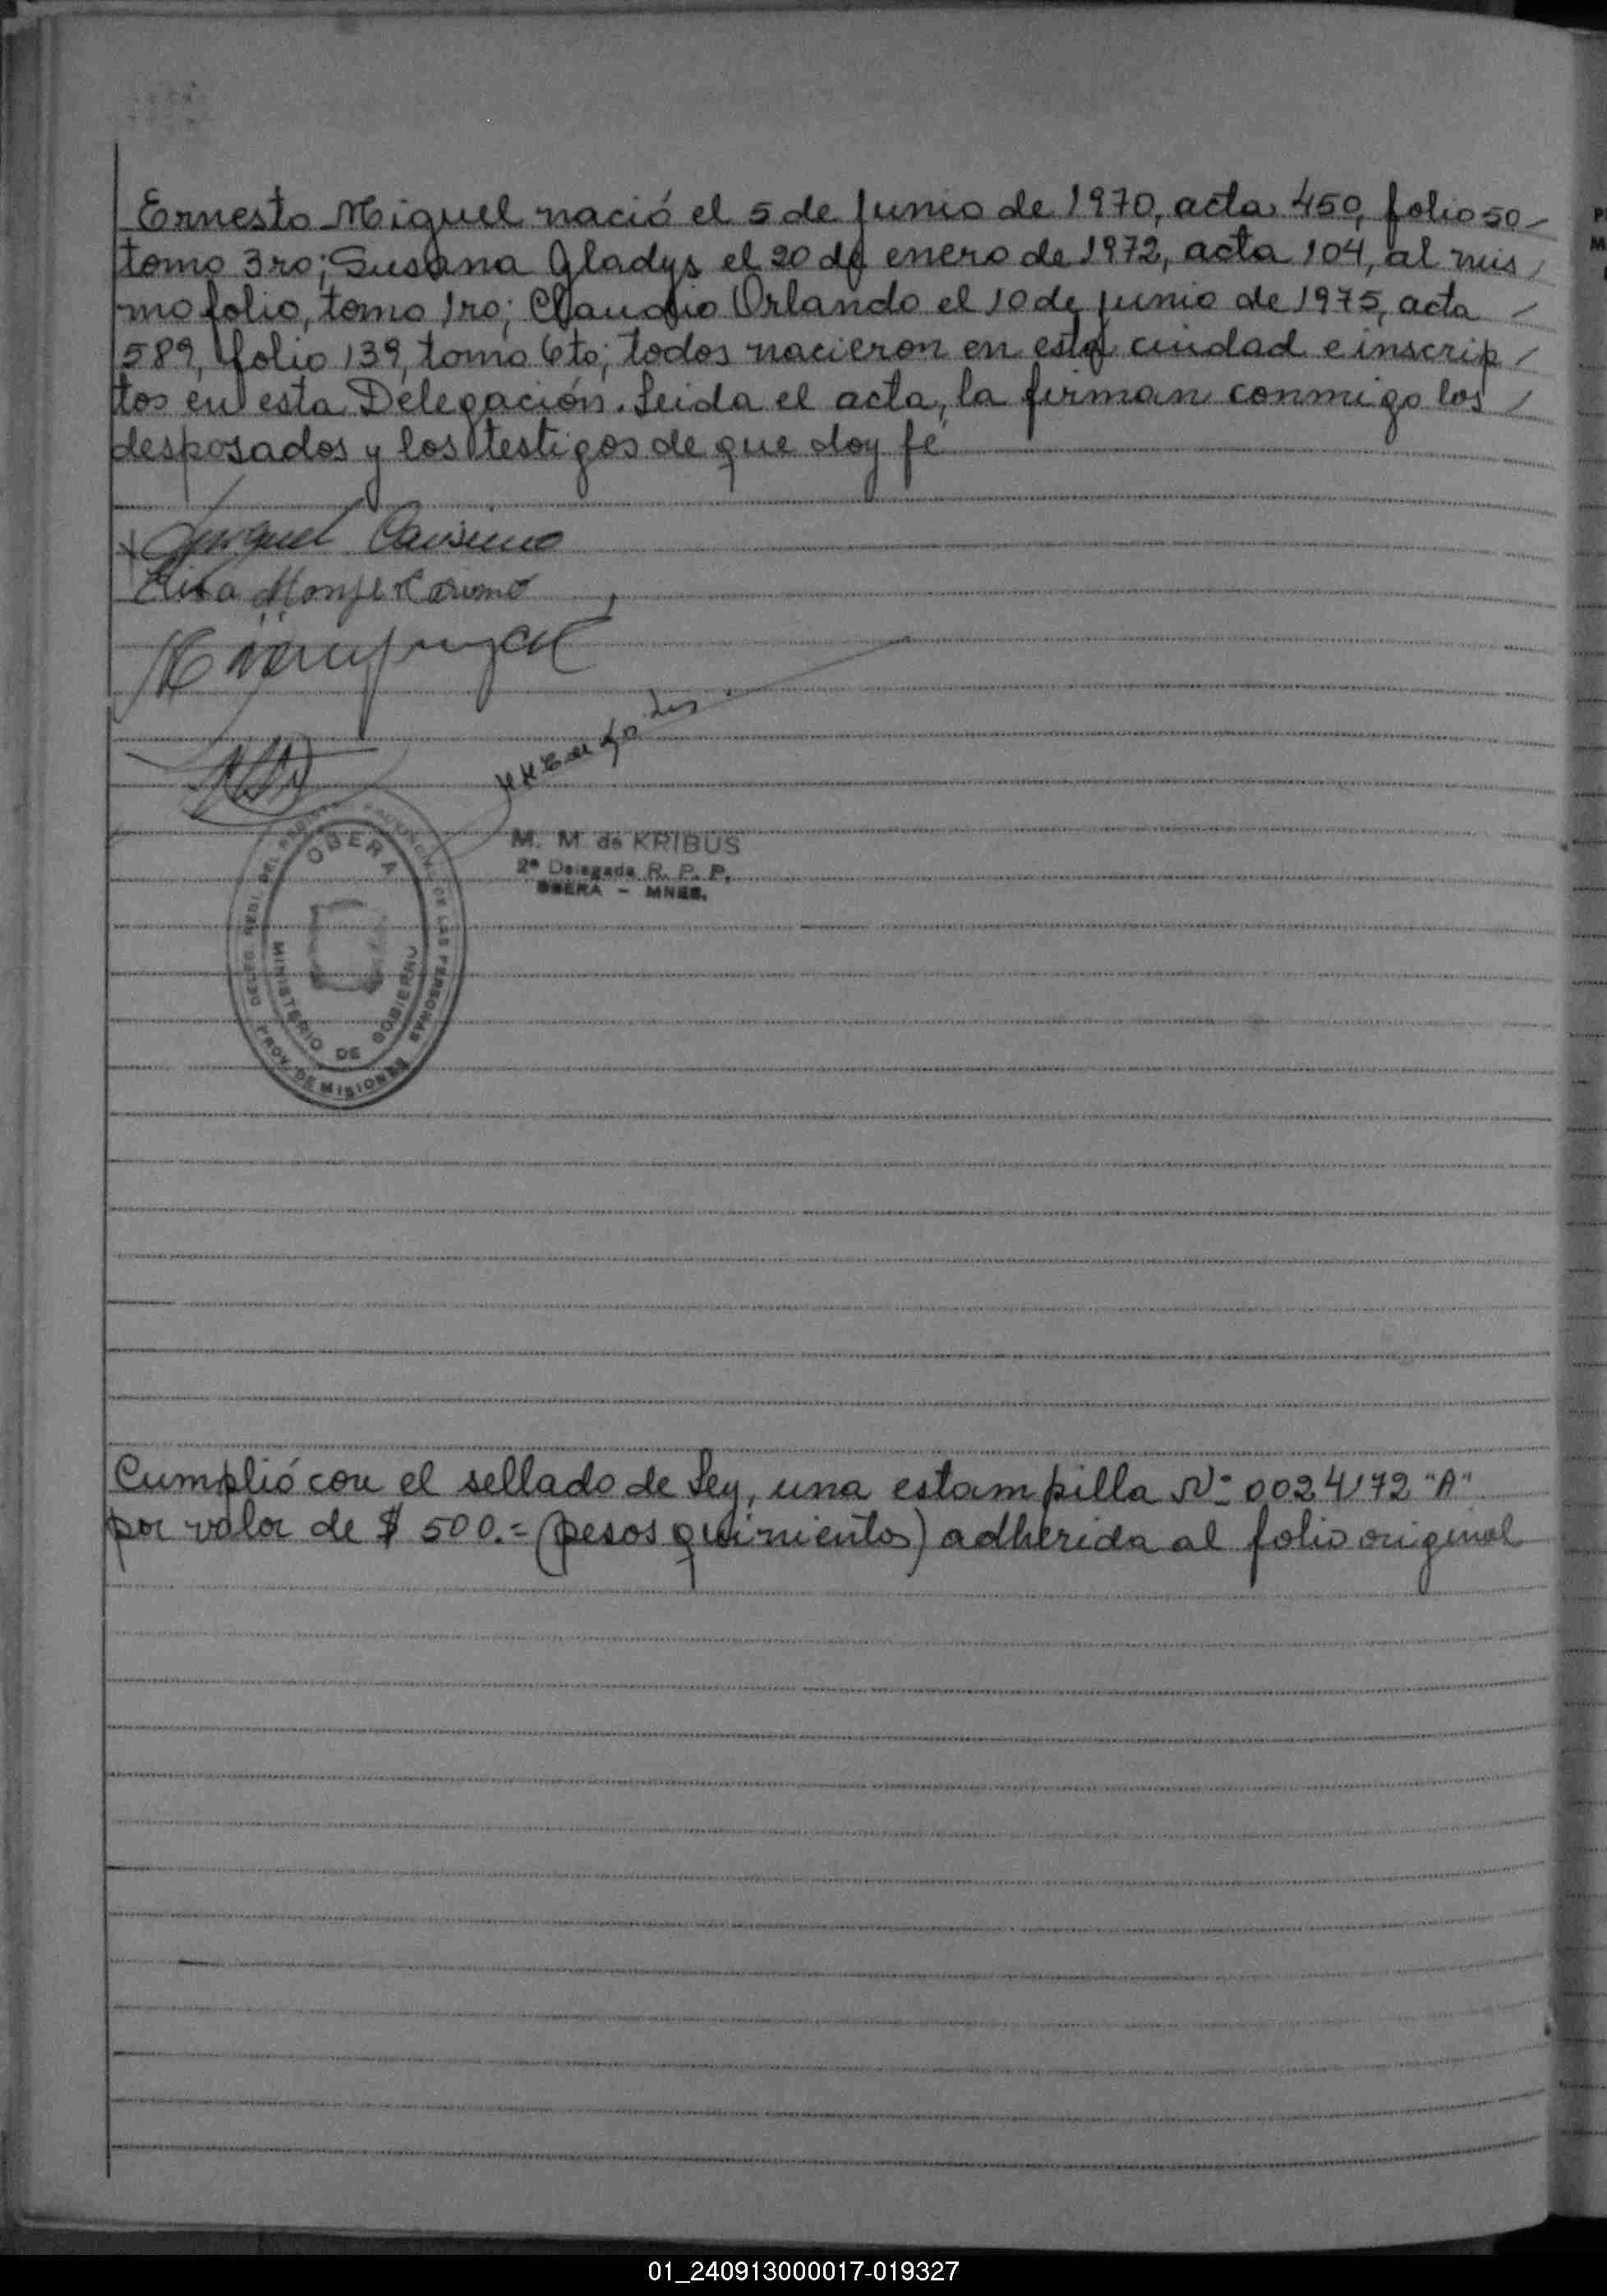 Ernesto Miguel nació el 5 de junio de 1970, acta 450, folio 50-
tomo 3ro; Susana Gladys el 20 de enero de 1972, acta 104, al mis/
mo folio, tomo 1ro; Claudio Orlando el 10 de junio de 1975, acta -
589, folio 139, tomo 6to; todos nacieron en esta ciudad e inscrip/
tos en esta Delegación. Leida el acta, la firman conmigo los /
desposados y los testigos de que doy fé
Miguel
M. M de KRIBUS
2ª Delegada R. P. P.
OBERA - MNES.
OBERA
MINISTERIO DE GOBIERNO
DE LAS PERSONAS
PROV. DE MISIONES
Cumplió con el sellado de Ley, una estampilla Nº 0024172 "A"
por valor de $ 500.= (pesos quinientos) adherida al folio original
01_240913000017-019327